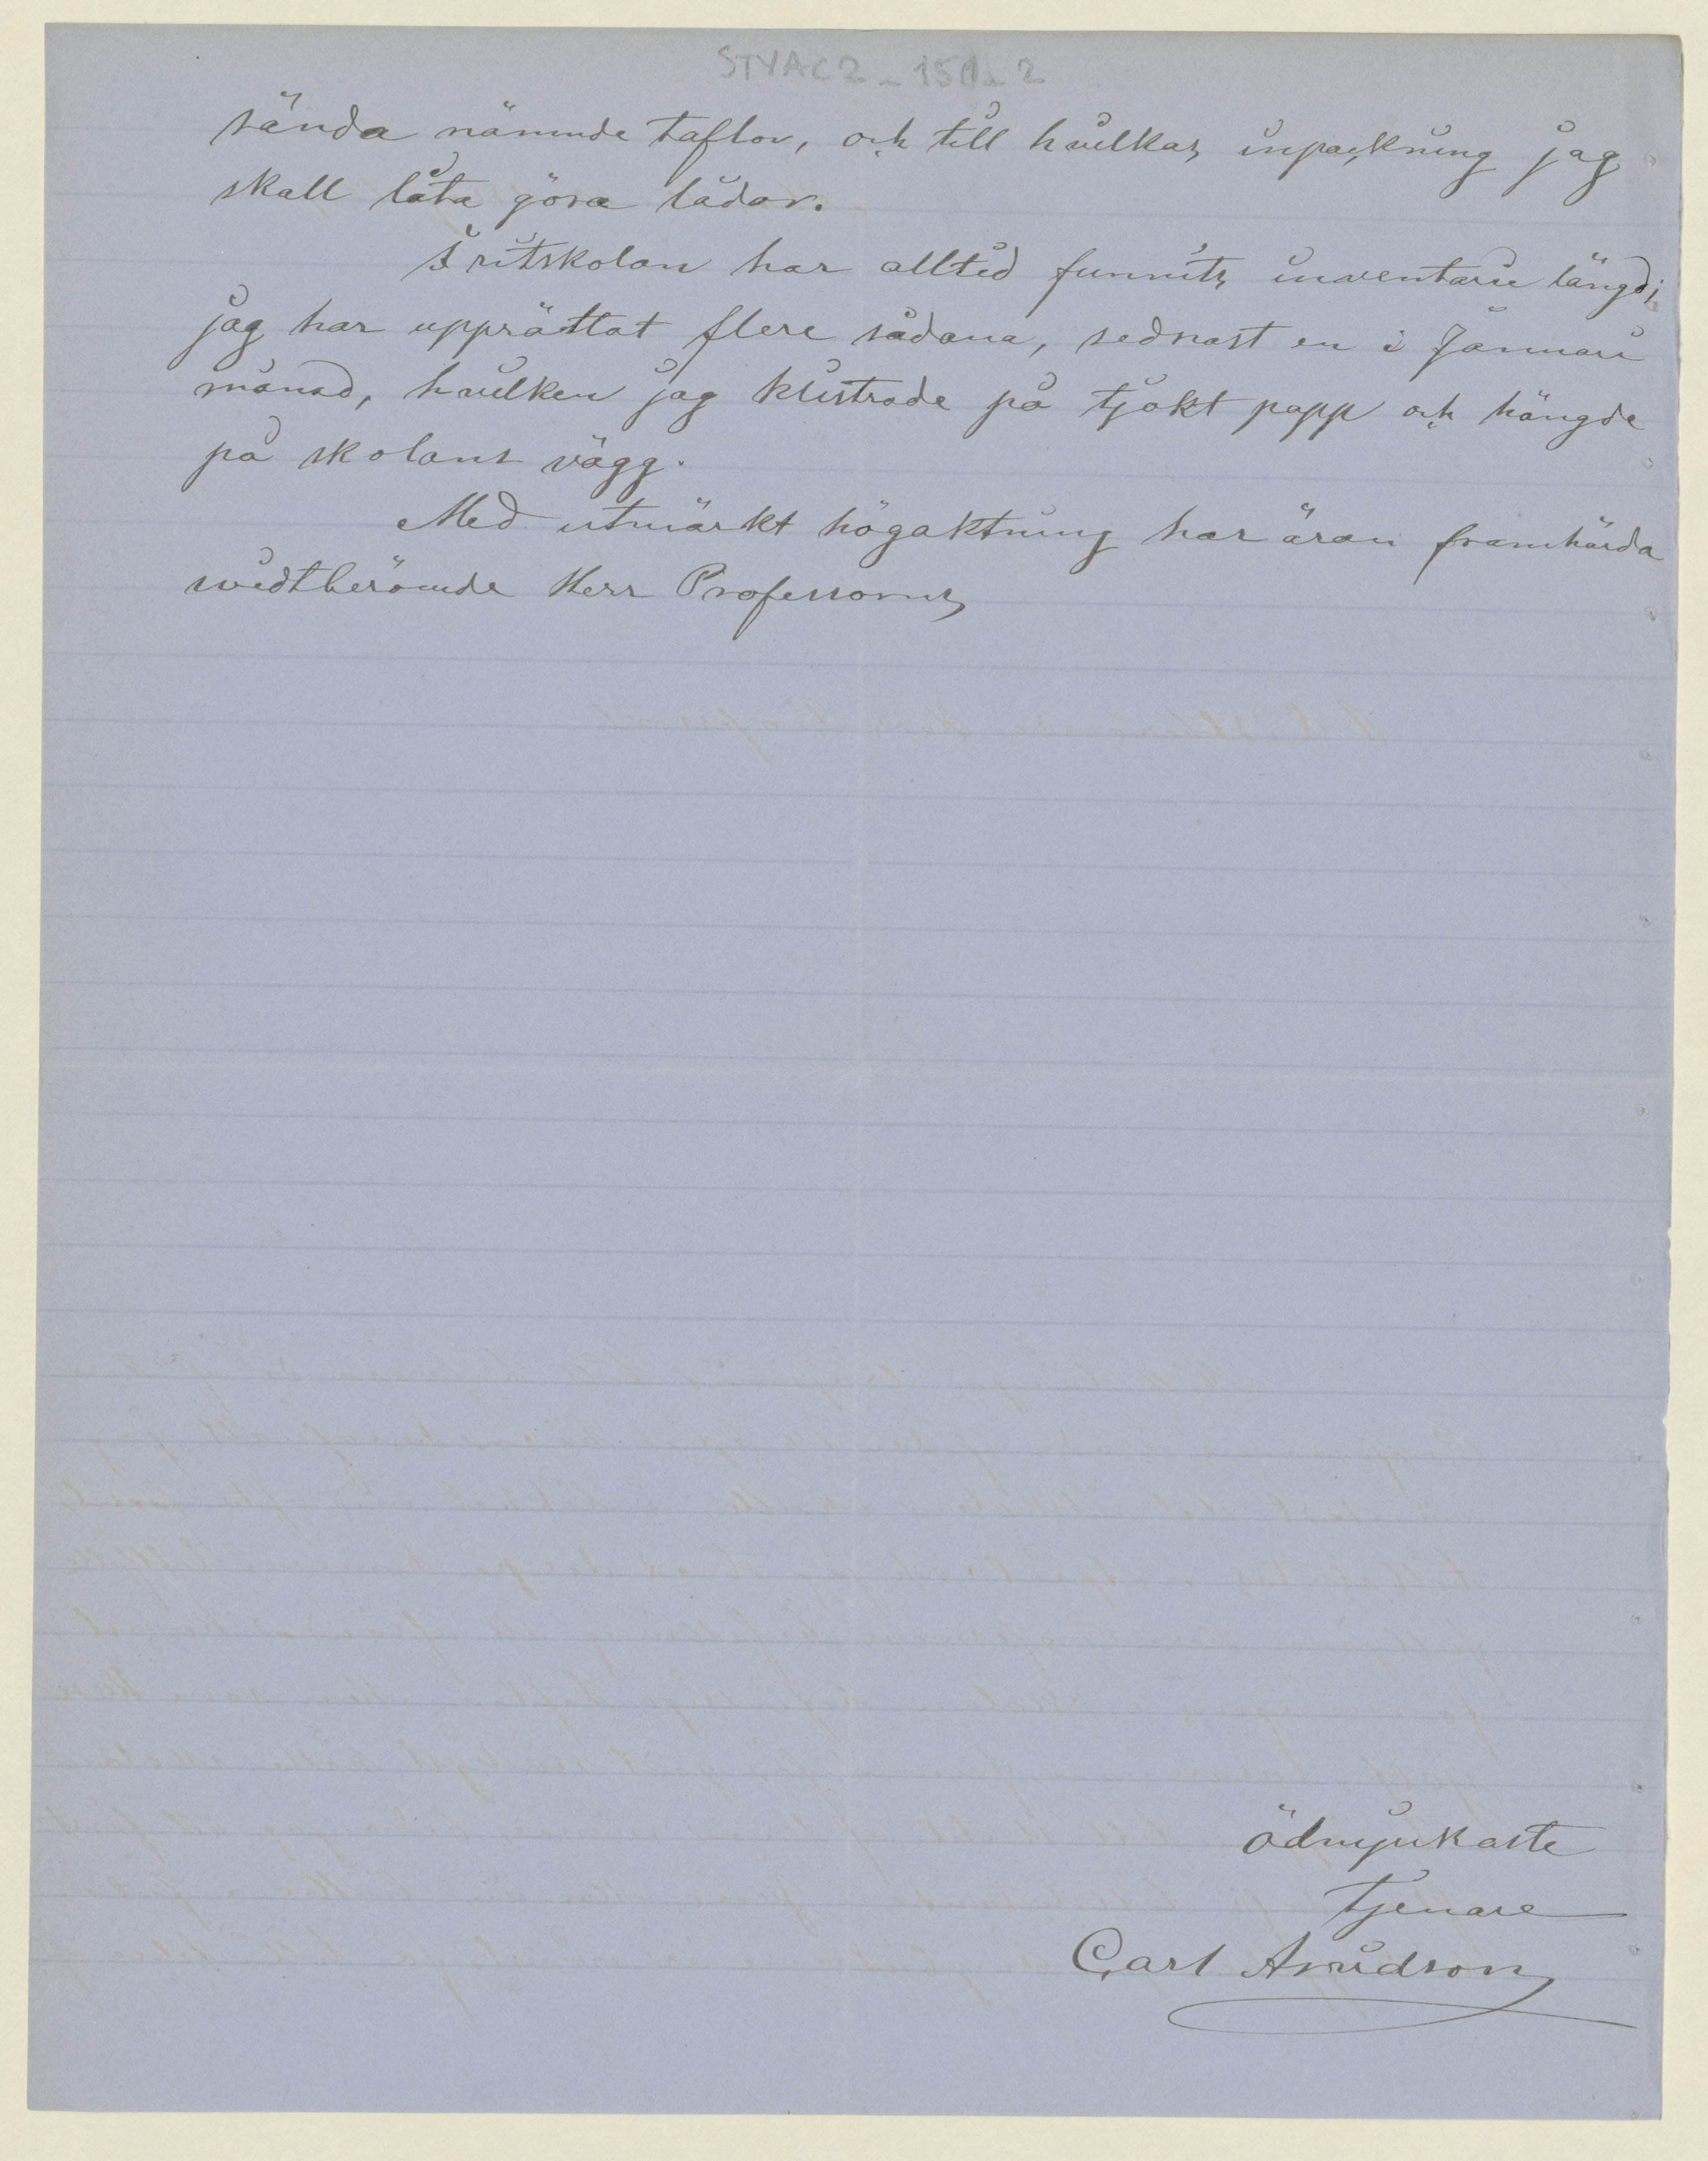 STYAC2_150_2
sända nämnde taflor, och till hvilkas inpackning jag
skall låta göra lådor.
I ritskolan har alltid funnits inventarie längd;
jag har upprättat flere sådana, sednast en i Januari
månad, hvilken jag klistrade på tjokt papp och hängde
på skolans vägg.
Med utmärkt högaktning har äran framhärda
widtberömde Herr Professorns
ödmjukaste
tjenare
Carl Arvidson